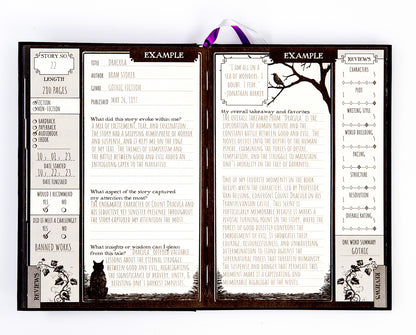 STORY NO.
22
LENGTH
210 PAGES
FICTION
NON-FICTION
HARDBACK
PAPERBACK
AUDIOBOOK
EBOOK
10, 01, 23
DATE STARTED
10, 22, 23
DATE FINISHED
WOULD I RECOMMEND
YES NO
DID IT MEET A CHALLENGE?
YES NO
BANNED WORKS
REVIEWS
EXAMPLE
TITLE DRACULA
AUTHOR BRAM STOKER
GENRE GOTHIC FICTION
PUBLISHED MAY 26, 1897
What did this story evoke within me?
A MIX OF EXCITEMENT, FEAR, AND FASCINATION.
THE STORY HAD A GRIPPING ATMOSPHERE OF HORROR
AND SUSPENSE, AND IT KEPT ME ON THE EDGE
OF MY SEAT. THE THEMES OF VAMPIRISM AND
THE BATTLE BETWEEN GOOD AND EVIL ADDED AN
INTRIGUING LAYER TO THE NARRATIVE.
What aspect of the story captured
my attention the most?
THE ENIGMATIC CHARACTER OF COUNT DRACULA AND
HIS SEDUCTIVE YET SINISTER PRESENCE THROUGHOUT
THE STORY CAPTURED MY ATTENTION THE MOST.
What insights or wisdom can I glean
from this tale?
DRACULA, OFFERED VALUABLE
LESSONS ABOUT THE ETERNAL STRUGGLE
BETWEEN GOOD AND EVIL, HIGHLIGHTING
THE SIGNIFICANCE OF BRAVERY, UNITY &
RESISTING ONE'S DARKEST IMPULSES.
EXAMPLE
"I AM ALL IN A
SEA OF WONDERS. I
DOUBT. I FEAR."
-JONATHAN HARKER
My overall takeaway and favorites
THE OVERALL TAKEAWAY FROM "DRACULA" IS THE
EXPLORATION OF HUMAN NATURE AND THE
STRUGGLE BETWEEN GOOD AND EVIL. THE
NOVEL DELVES INTO THE DEPTHS OF THE HUMAN
PSYCHE, EXAMINING THE THEMES OF DESIRE,
TEMPTATION, AND THE STRUGGLE TO MAINTAIN
ONE'S MORALITY IN THE FACE OF DARKNESS.
ONE OF MY FAVORITE MOMENTS IN THE BOOK
OCCURS WHEN THE CHARACTERS, LED BY PROFESSOR
VAN HELSING, CONFRONT COUNT DRACULA IN HIS
TRANSYLVANIAN CASTLE. THIS SCENE IS
PARTICULARLY MEMORABLE BECAUSE IT MARKS A
PIVOTAL TURNING POINT IN THE STORY, WHERE THE
FORCES OF GOOD DIRECTLY CONFRONT THE
EMBODIMENT OF EVIL. IT SHOWCASES THEIR
COURAGE, RESOURCEFULNESS, AND UNWAVERING
DETERMINATION TO STAND AGAINST THE
SUPERNATURAL FORCES THAT THREATEN HUMANITY.
THE SUSPENSE AND DANGER THAT PERMEATE THIS
MOMENT MAKE IT A CAPTIVATING AND
MEMORABLE HIGHLIGHT OF THE BOOK.
REVIEWS
CHARACTERS
PLOT
WRITING STYLE
WORLD BUILDING
PACING
STRUCTURE
RESOLUTION
OVERALL RATING
ONE WORD SUMMARY
GOTHIC
REVIEWS